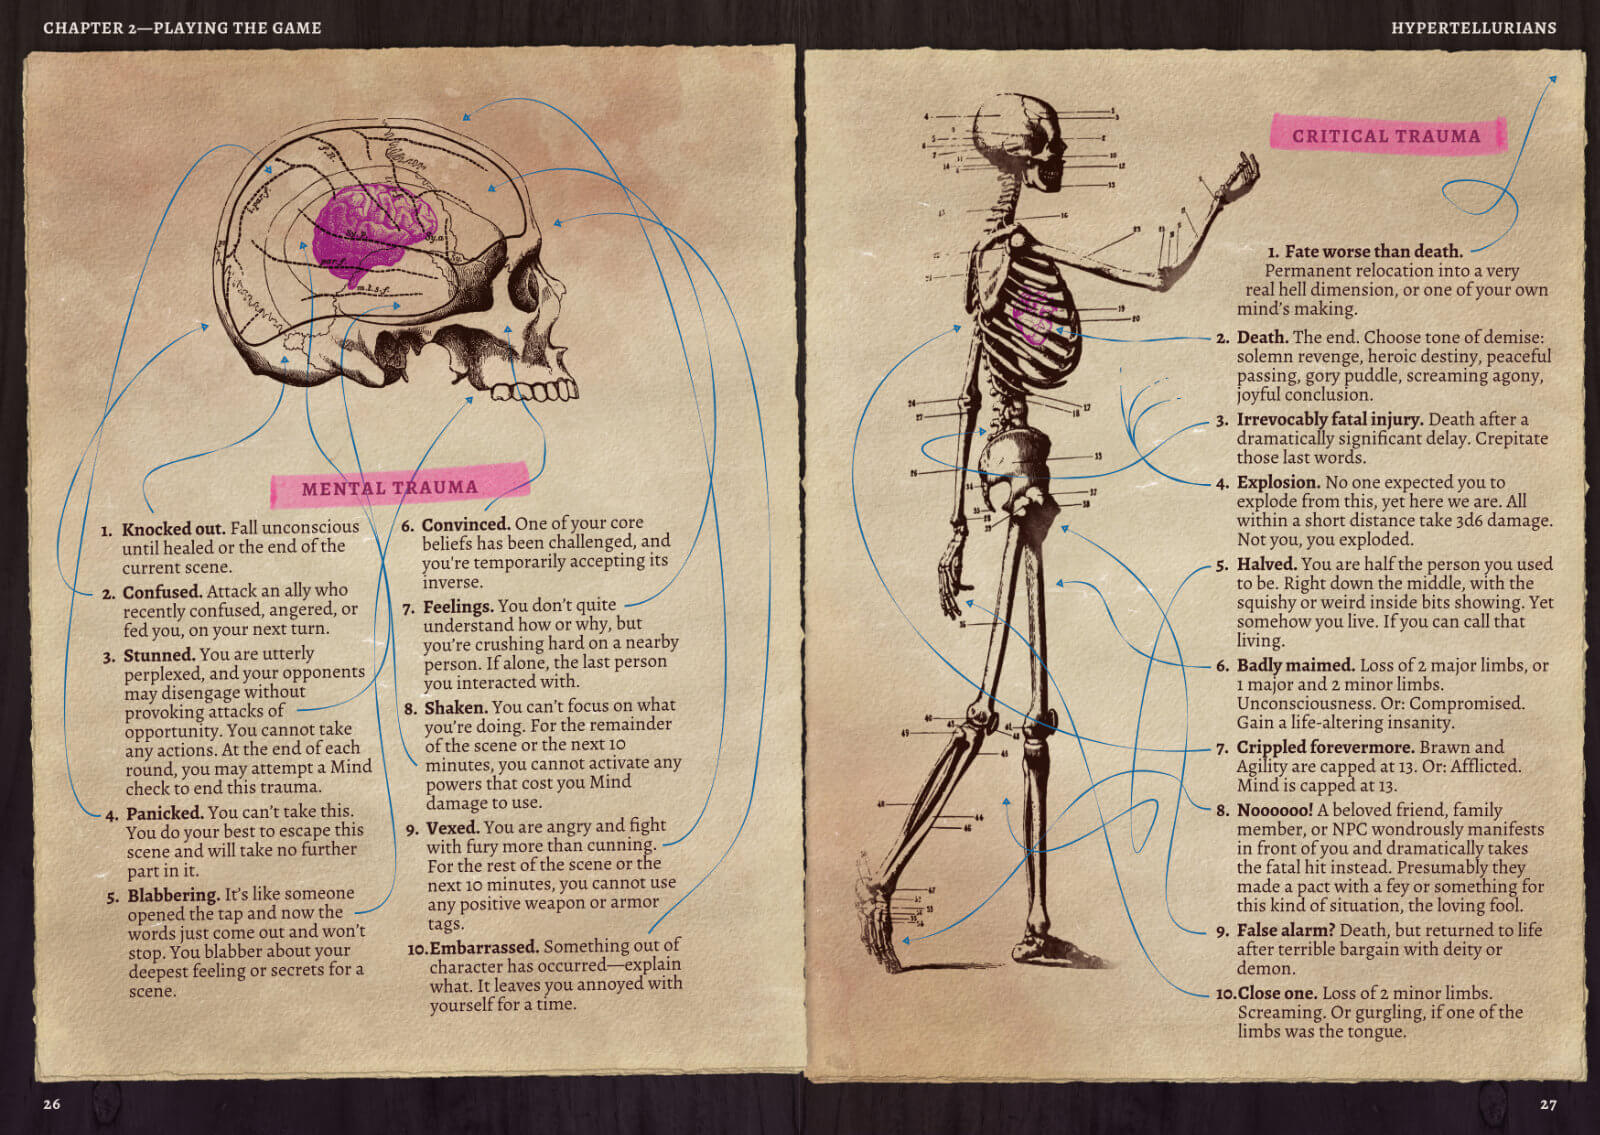 CHAPTER 2—PLAYING THE GAME
MENTAL TRAUMA
1. Knocked out. Fall unconscious
until healed or the end of the
current scene.
2. Confused. Attack an ally who
recently confused, angered, or
fed you, on your next turn.
3. Stunned. You are utterly
perplexed, and your opponents
may disengage without
provoking attacks of
opportunity. You cannot take
any actions. At the end of each
round, you may attempt a Mind
check to end this trauma.
4. Panicked. You can't take this.
You do your best to escape this
scene and will take no further
part in it.
5. Blabbering. It's like someone
opened the tap and now the
words just come out and won't
stop. You blabber about your
deepest feeling or secrets for a
scene.
6. Convinced. One of your core
beliefs has been challenged, and
you're temporarily accepting its
inverse.
7. Feelings. You don't quite
understand how or why, but
you're crushing hard on a nearby
person. If alone, the last person
you interacted with.
8. Shaken. You can't focus on what
you're doing. For the remainder
of the scene or the next 10
minutes, you cannot activate any
powers that cost you Mind
damage to use.
9. Vexed. You are angry and fight
with fury more than cunning.
For the rest of the scene or the
next 10 minutes, you cannot use
any positive weapon or armor
tags.
10.Embarrassed. Something out of
character has occurred—explain
what. It leaves you annoyed with
yourself for a time.
26
HYPERTELLURIANS
CRITICAL TRAUMA
1. Fate worse than death.
Permanent relocation into a very
real hell dimension, or one of your own
mind's making.
2. Death. The end. Choose tone of demise:
solemn revenge, heroic destiny, peaceful
passing, gory puddle, screaming agony,
joyful conclusion.
3. Irrevocably fatal injury. Death after a
dramatically significant delay. Crepitate
those last words.
4. Explosion. No one expected you to
explode from this, yet here we are. All
within a short distance take 3d6 damage.
Not you, you exploded.
5. Halved. You are half the person you used
to be. Right down the middle, with the
squishy or weird inside bits showing. Yet
somehow you live. If you can call that
living.
6. Badly maimed. Loss of 2 major limbs, or
1 major and 2 minor limbs.
Unconsciousness. Or: Compromised.
Gain a life-altering insanity.
7. Crippled forevermore. Brawn and
Agility are capped at 13. Or: Afflicted.
Mind is capped at 13.
8. Noooooo! A beloved friend, family
member, or NPC wondrously manifests
in front of you and dramatically takes
the fatal hit instead. Presumably they
made a pact with a fey or something for
this kind of situation, the loving fool.
9. False alarm? Death, but returned to life
after terrible bargain with deity or
demon.
10.Close one. Loss of 2 minor limbs.
Screaming. Or gurgling, if one of the
limbs was the tongue.
27